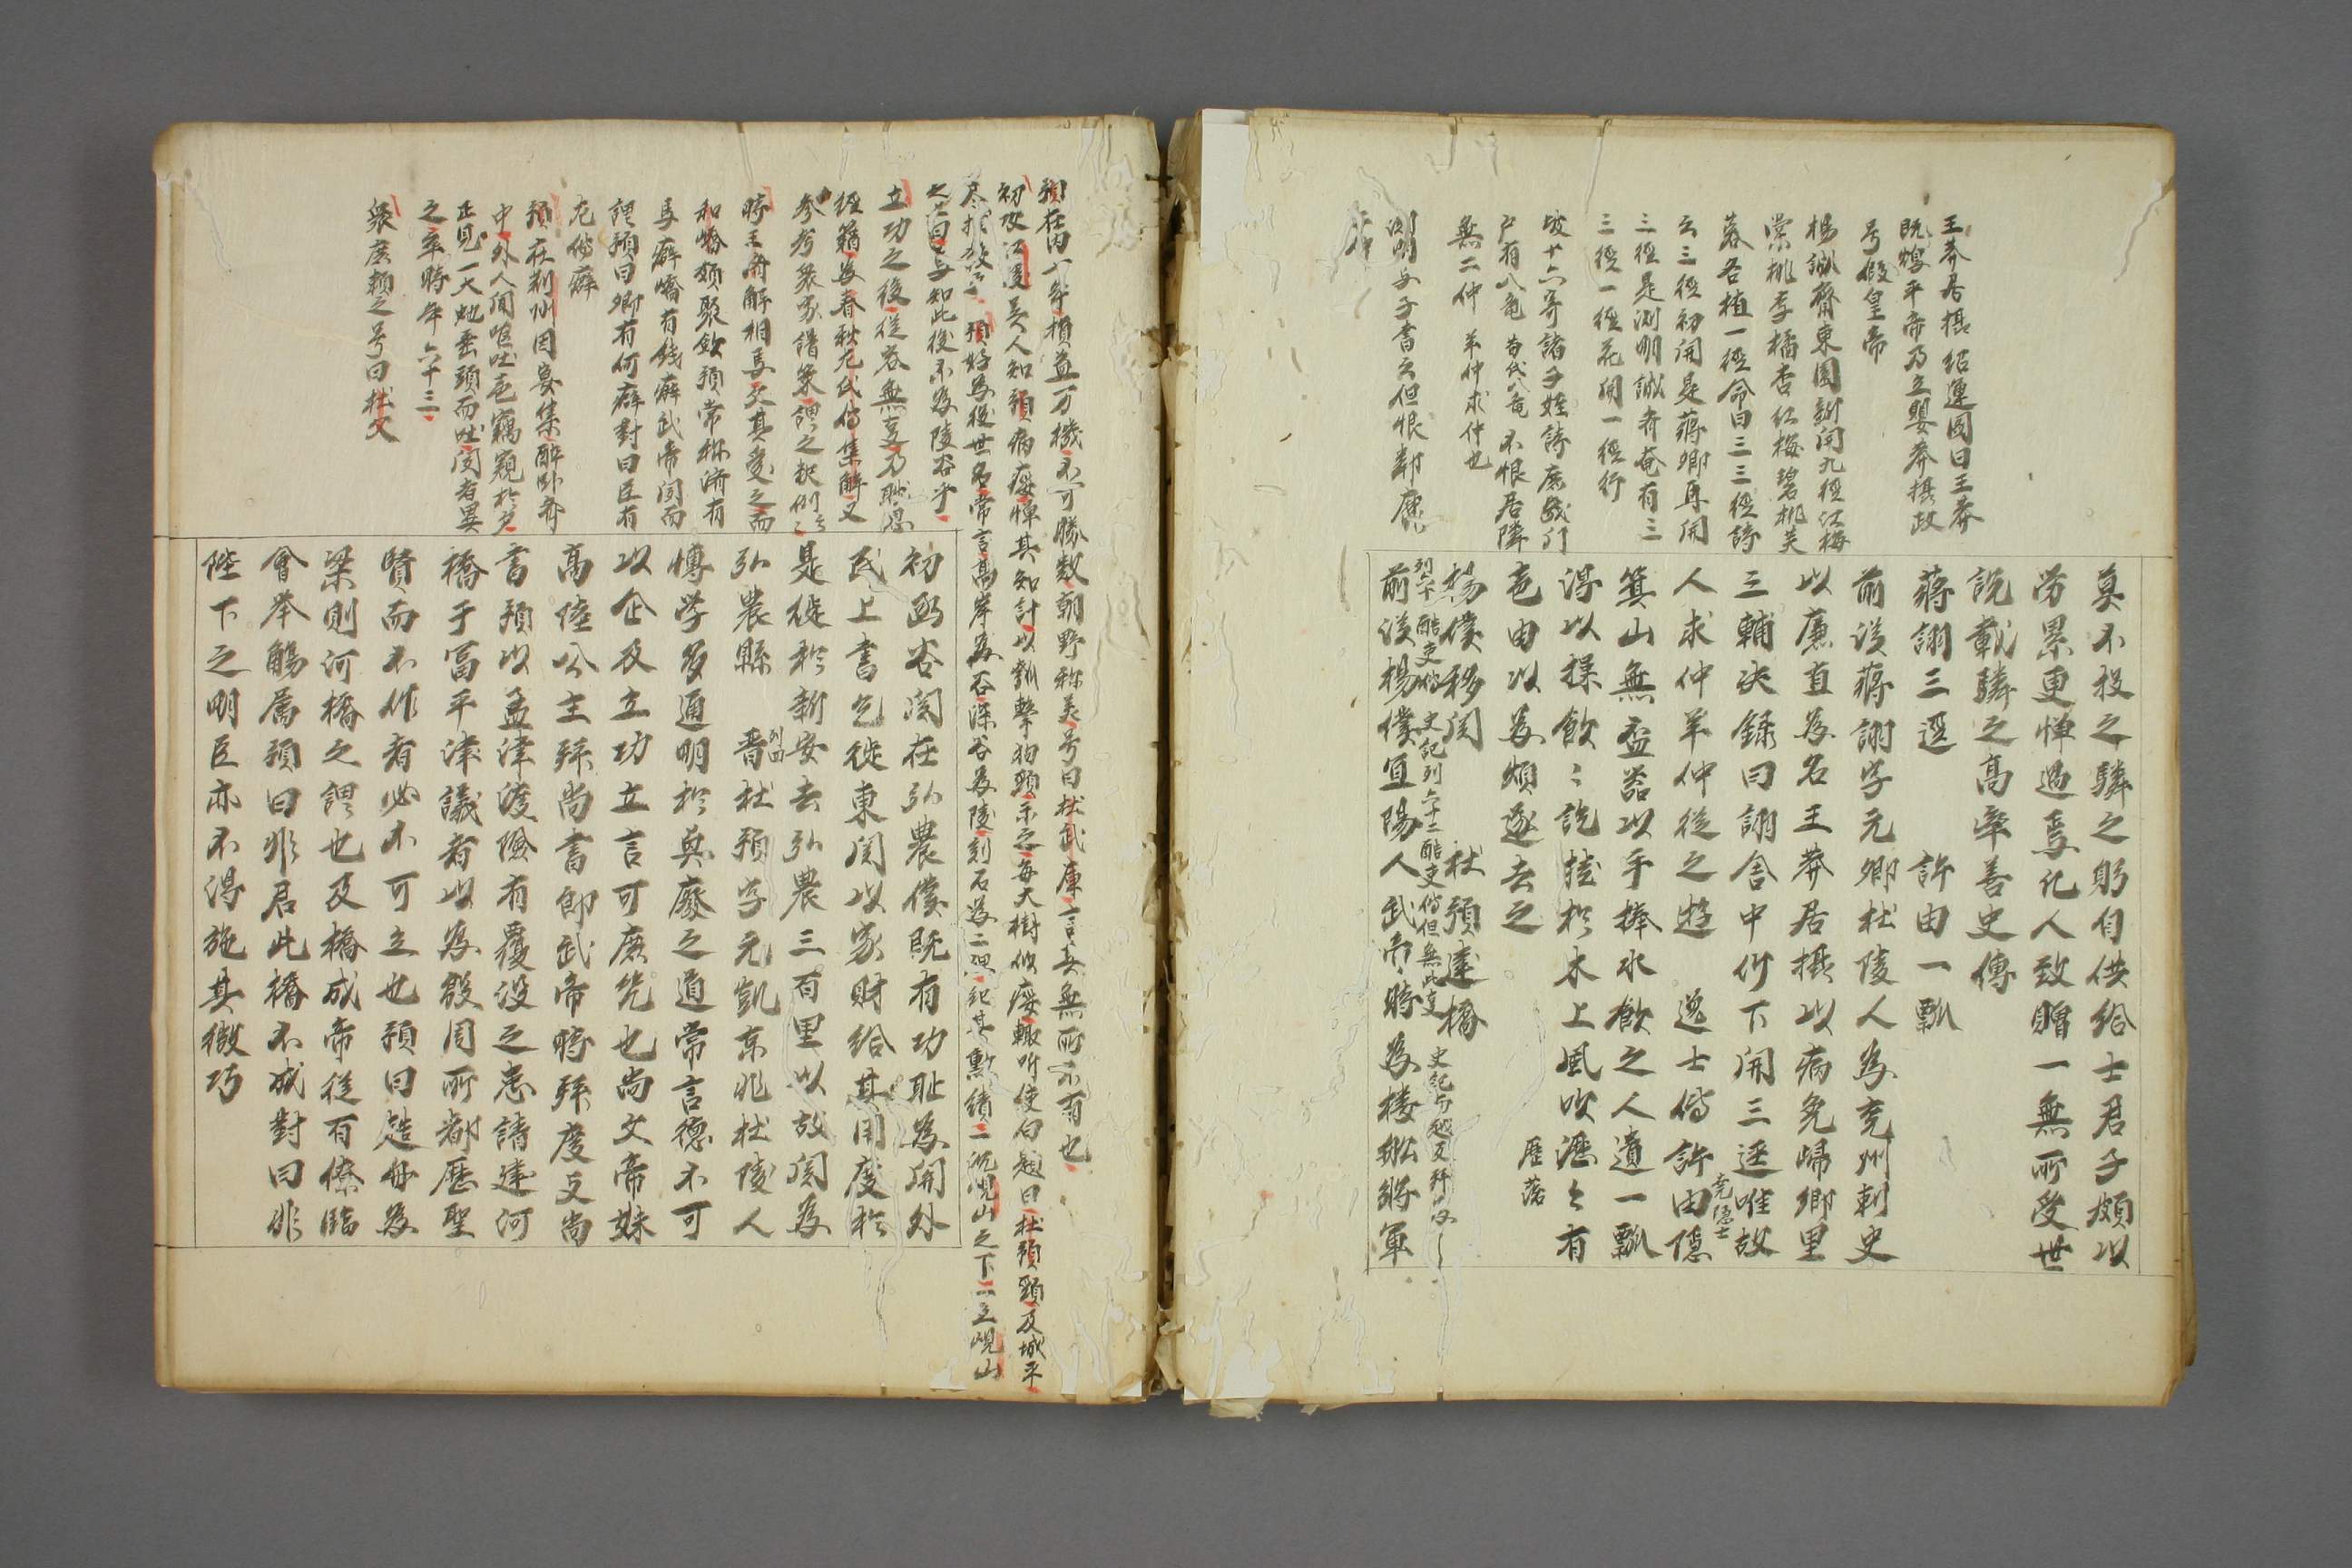 王莽居攝 紹運圖曰王莽
既鴆平帝乃立嬰莽攝政
号假皇帝
楊誠齋東園新開九徑江梅
棠桃李橘杏紅梅碧桃芙
蓉各植一徑命曰三三徑詩
云三徑初開是蔣卿再開
三徑是渕明誠斉奄有三
三徑一徑花開一徑行
坡十六寄諸子姪詩
戸有八 不恨居隣
無二仲 羊仲求仲也
渕明与子書云但恨鄰
莫不投之驎之躬自供給士君子頗以
労累更憚過焉凡人致贈一無所受世
説載驎之高率善史傳
蔣詡三逕 許由一瓢
前漢蔣詡字元卿杜陵人為兗州刺史
以廉直為名王莽居攝以病免歸鄉里
三輔决録曰詡舎中竹下開三逕唯故
人求仲羊仲從之遊 逸士傳許由隱
堯隠士
箕山無盃器以手捧水飲之人遺一瓢
得以操飲ミ訖挂於木上風吹瀝々有
歴落
声由以為煩遂去之
楊僕移関 杜預建橋
列六十 酷吏傳 史記列六十二酷吏傳但無此支
前漢楊僕宜陽人武帝時為楼舩将軍
預在内七年損益万機不可勝数朝野称美号曰杜武庫言其無所不有也
初攻江陵吴人知預病癭憚其知計以瓠繋狗頸示之毎大樹似癭輙斫使白題曰杜預頸及城平
尽捕殺之 預好為後世名常言高岸為谷深谷為陵刻石為二碑紀其勲績一沉峴山之下一立峴山
之上曰焉知此後不為陵谷乎
立功之後従容無事乃耽思
經籍為春秋左氏傳集解又
参考衆家譜第謂之釈例
時王済解相馬又甚愛之而
和嶠頗聚歛預常称済有
馬癖嶠有銭癖武帝聞而
謂預曰卿有何癖對曰臣有
左傳癖
預在荊州因宴集醉卧斉
中外人聞嘔吐声竊窺於戸
正見一大虵垂頭而吐聞者異
之卒時年六十三
初凾谷関在弘農僕既有功耻為関外
民上書乞徙東関以家財給其用度於
是徙於新安去弘農三百里以故関為
弘農縣 晋杜預字元凱京兆杜陵人
列四
博学多通明於興廢之道常言德不可
以企及立功立言可庶幾也尚文帝妹
高陸公主拜尚書郎武帝時拜度支尚
書預以孟津渡險有覆没之患請建河
橋于冨平津議者以為殷周所都歴聖
賢而不作者必不可立也預曰造舟為
梁則河橋之謂也及橋成帝從百僚臨
會举觴属預曰非君此橋不成對曰非
陛下之明臣亦不得施其微巧